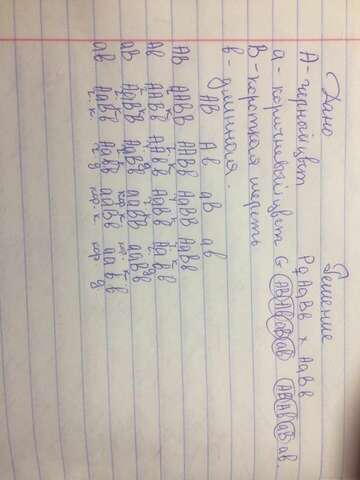 Дано Решение
А - чёрный цвет P ♀ АаВв × АаВв
а - коричневый цвет G АВ Ав аВ ав АВ Ав аВ ав.
В - короткая шерсть
в - длинная.
АВ Ав аВ ав
АВ ААВВ ААВв АаВВ АаВв
Ав ААВв ААвв АаВв Аавв
аВ АаВВ АаВв ааВВ ааВв
ав АаВв Аавв ааВв аавв